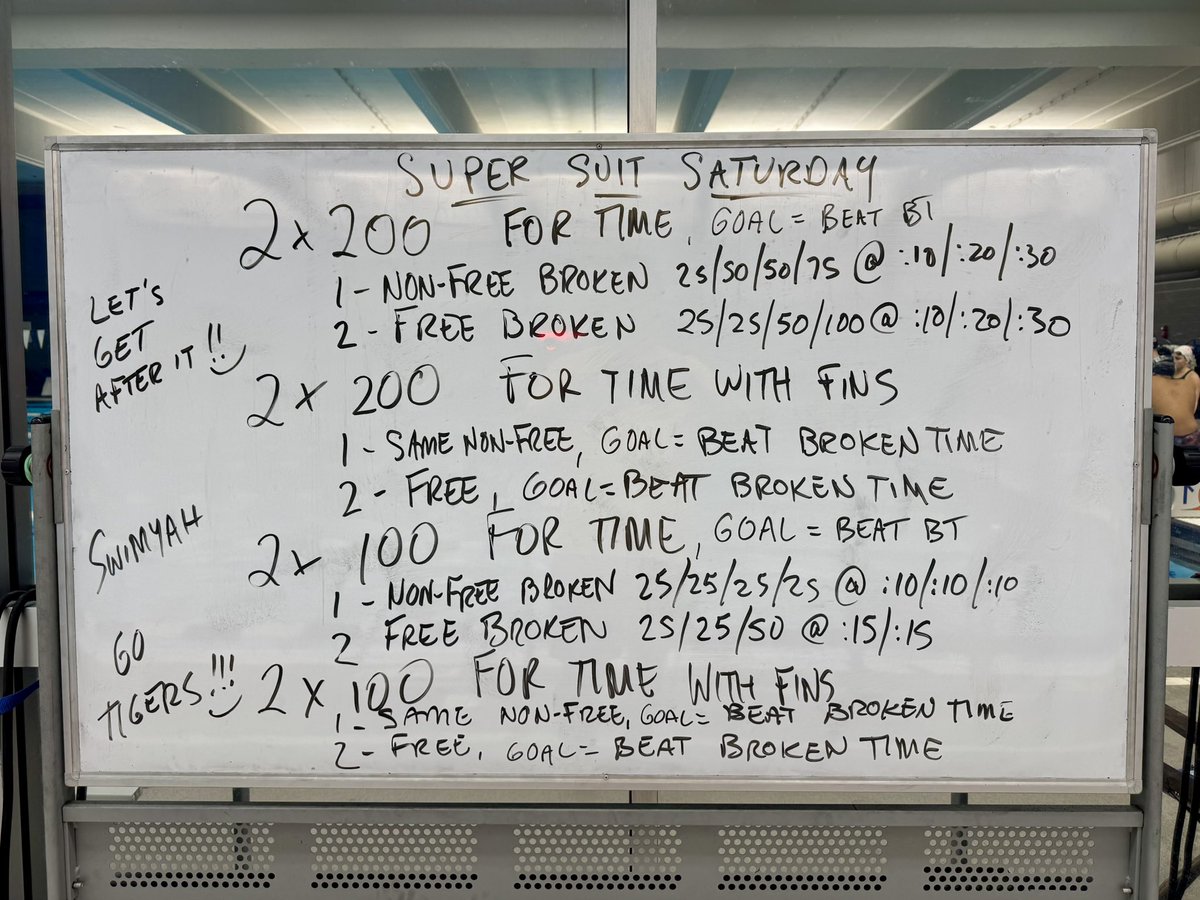 SUPER SUIT SATURDAY
2 x 200 FOR TIME, GOAL = BEAT BT
1 - NON-FREE BROKEN 25/50/50/75 @ :10/:20/:30
2 - FREE BROKEN 25/25/50/100 @ :10/:20/:30
LET'S
GET
AFTER IT!!
2 x 200 FOR TIME WITH FINS
1 - SAME NON-FREE, GOAL = BEAT BROKEN TIME
2 - FREE, GOAL = BEAT BROKEN TIME
SWIMYAH
2 x 100 FOR TIME, GOAL = BEAT BT
1 - NON-FREE BROKEN 25/25/25/25 @ :10/:10/:10
2 FREE BROKEN 25/25/50 @ :15/:15
GO
TIGERS!!!
2 x 100 FOR TIME WITH FINS
1 - SAME NON-FREE, GOAL = BEAT BROKEN TIME
2 - FREE, GOAL = BEAT BROKEN TIME